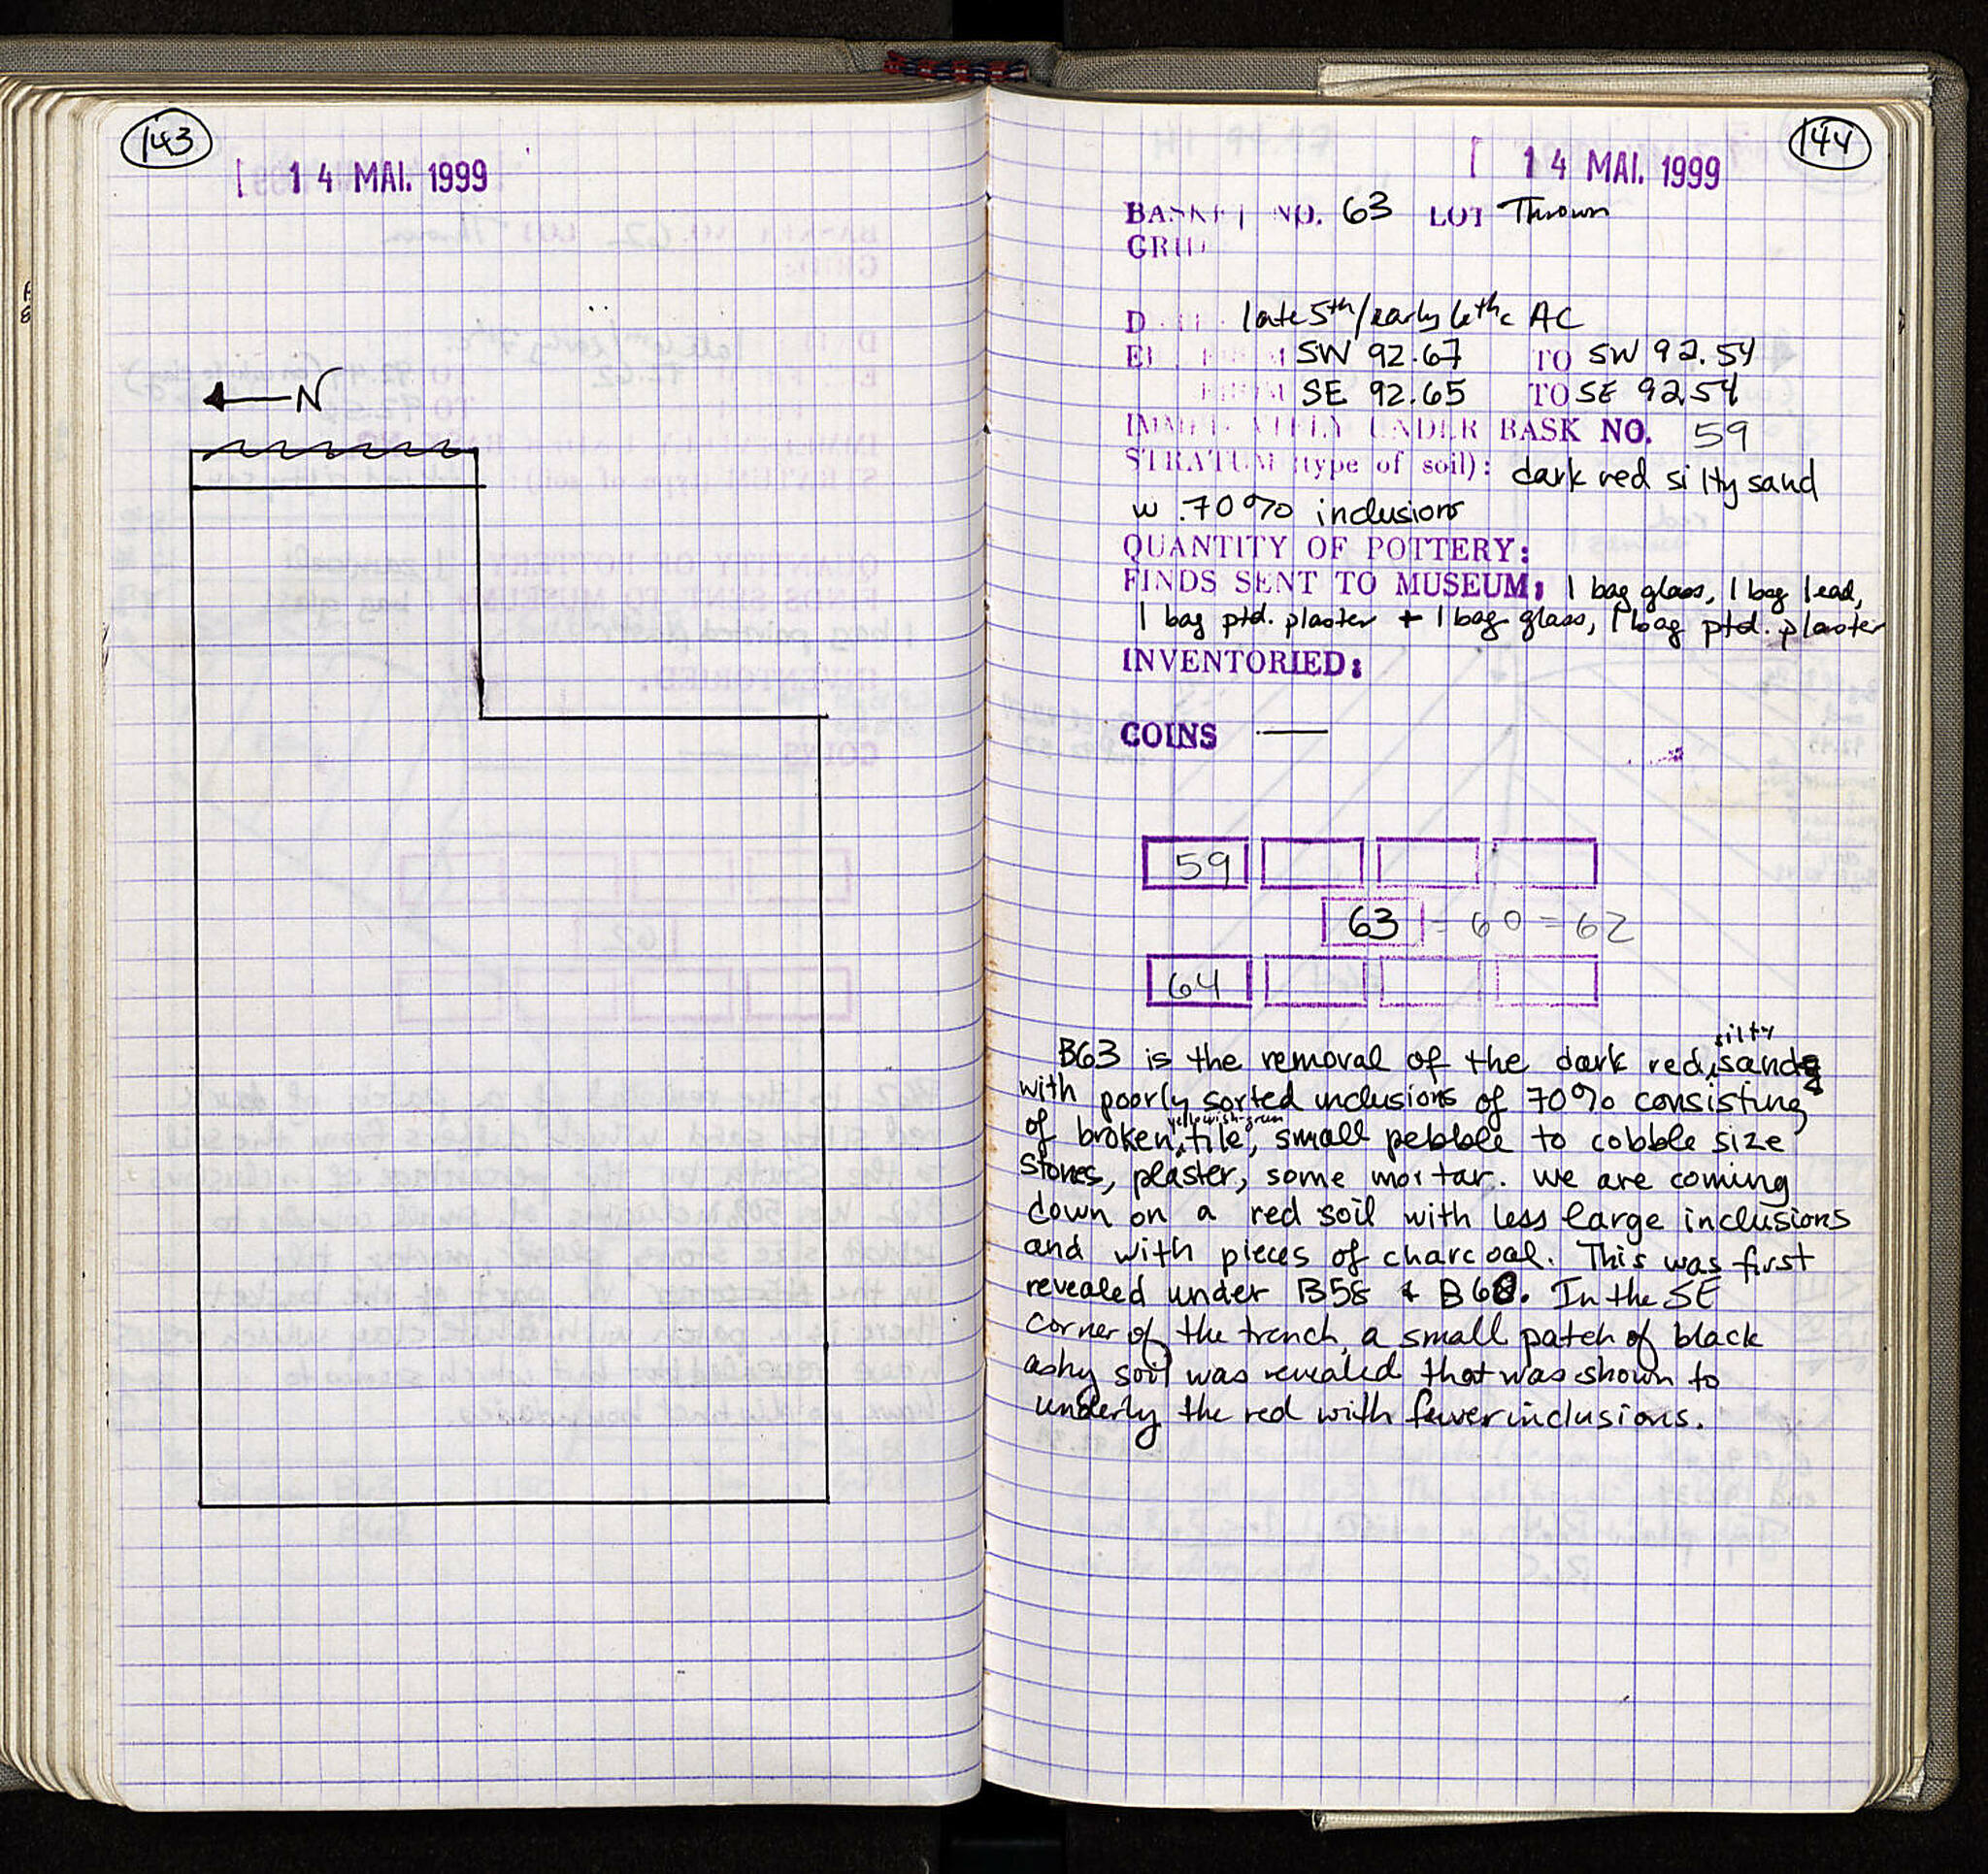 143
14 MAI. 1999
N
144
14 MAI. 1999
BASKET NO. 63 LOT Thrown
GRID
D late 5th/early 6th c AC
EL. FROM SW 92.67 TO SW 92.54
FROM SE 92.65 TO SE 92.54
IMMEDIATELY UNDER BASK NO. 59
STRATUM (type of soil): dark red silty sand
w .70% inclusions
QUANTITY OF POTTERY:
FINDS SENT TO MUSEUM: 1 bag glass, 1 bag lead,
1 bag ptd. plaster + 1 bag glass, 1 bag ptd. plaster
INVENTORIED:
COINS —
59
63 = 60 = 62
64
B63 is the removal of the dark red silty sand
with poorly sorted inclusions of 70% consisting
of broken yellowish-green tile, small pebble to cobble size
stones, plaster, some mortar. we are coming
down on a red soil with less large inclusions
and with pieces of charcoal. This was first
revealed under B58 & B60. In the SE
corner of the trench, a small patch of black
ashy soil was revealed that was shown to
underly the red with fewer inclusions.